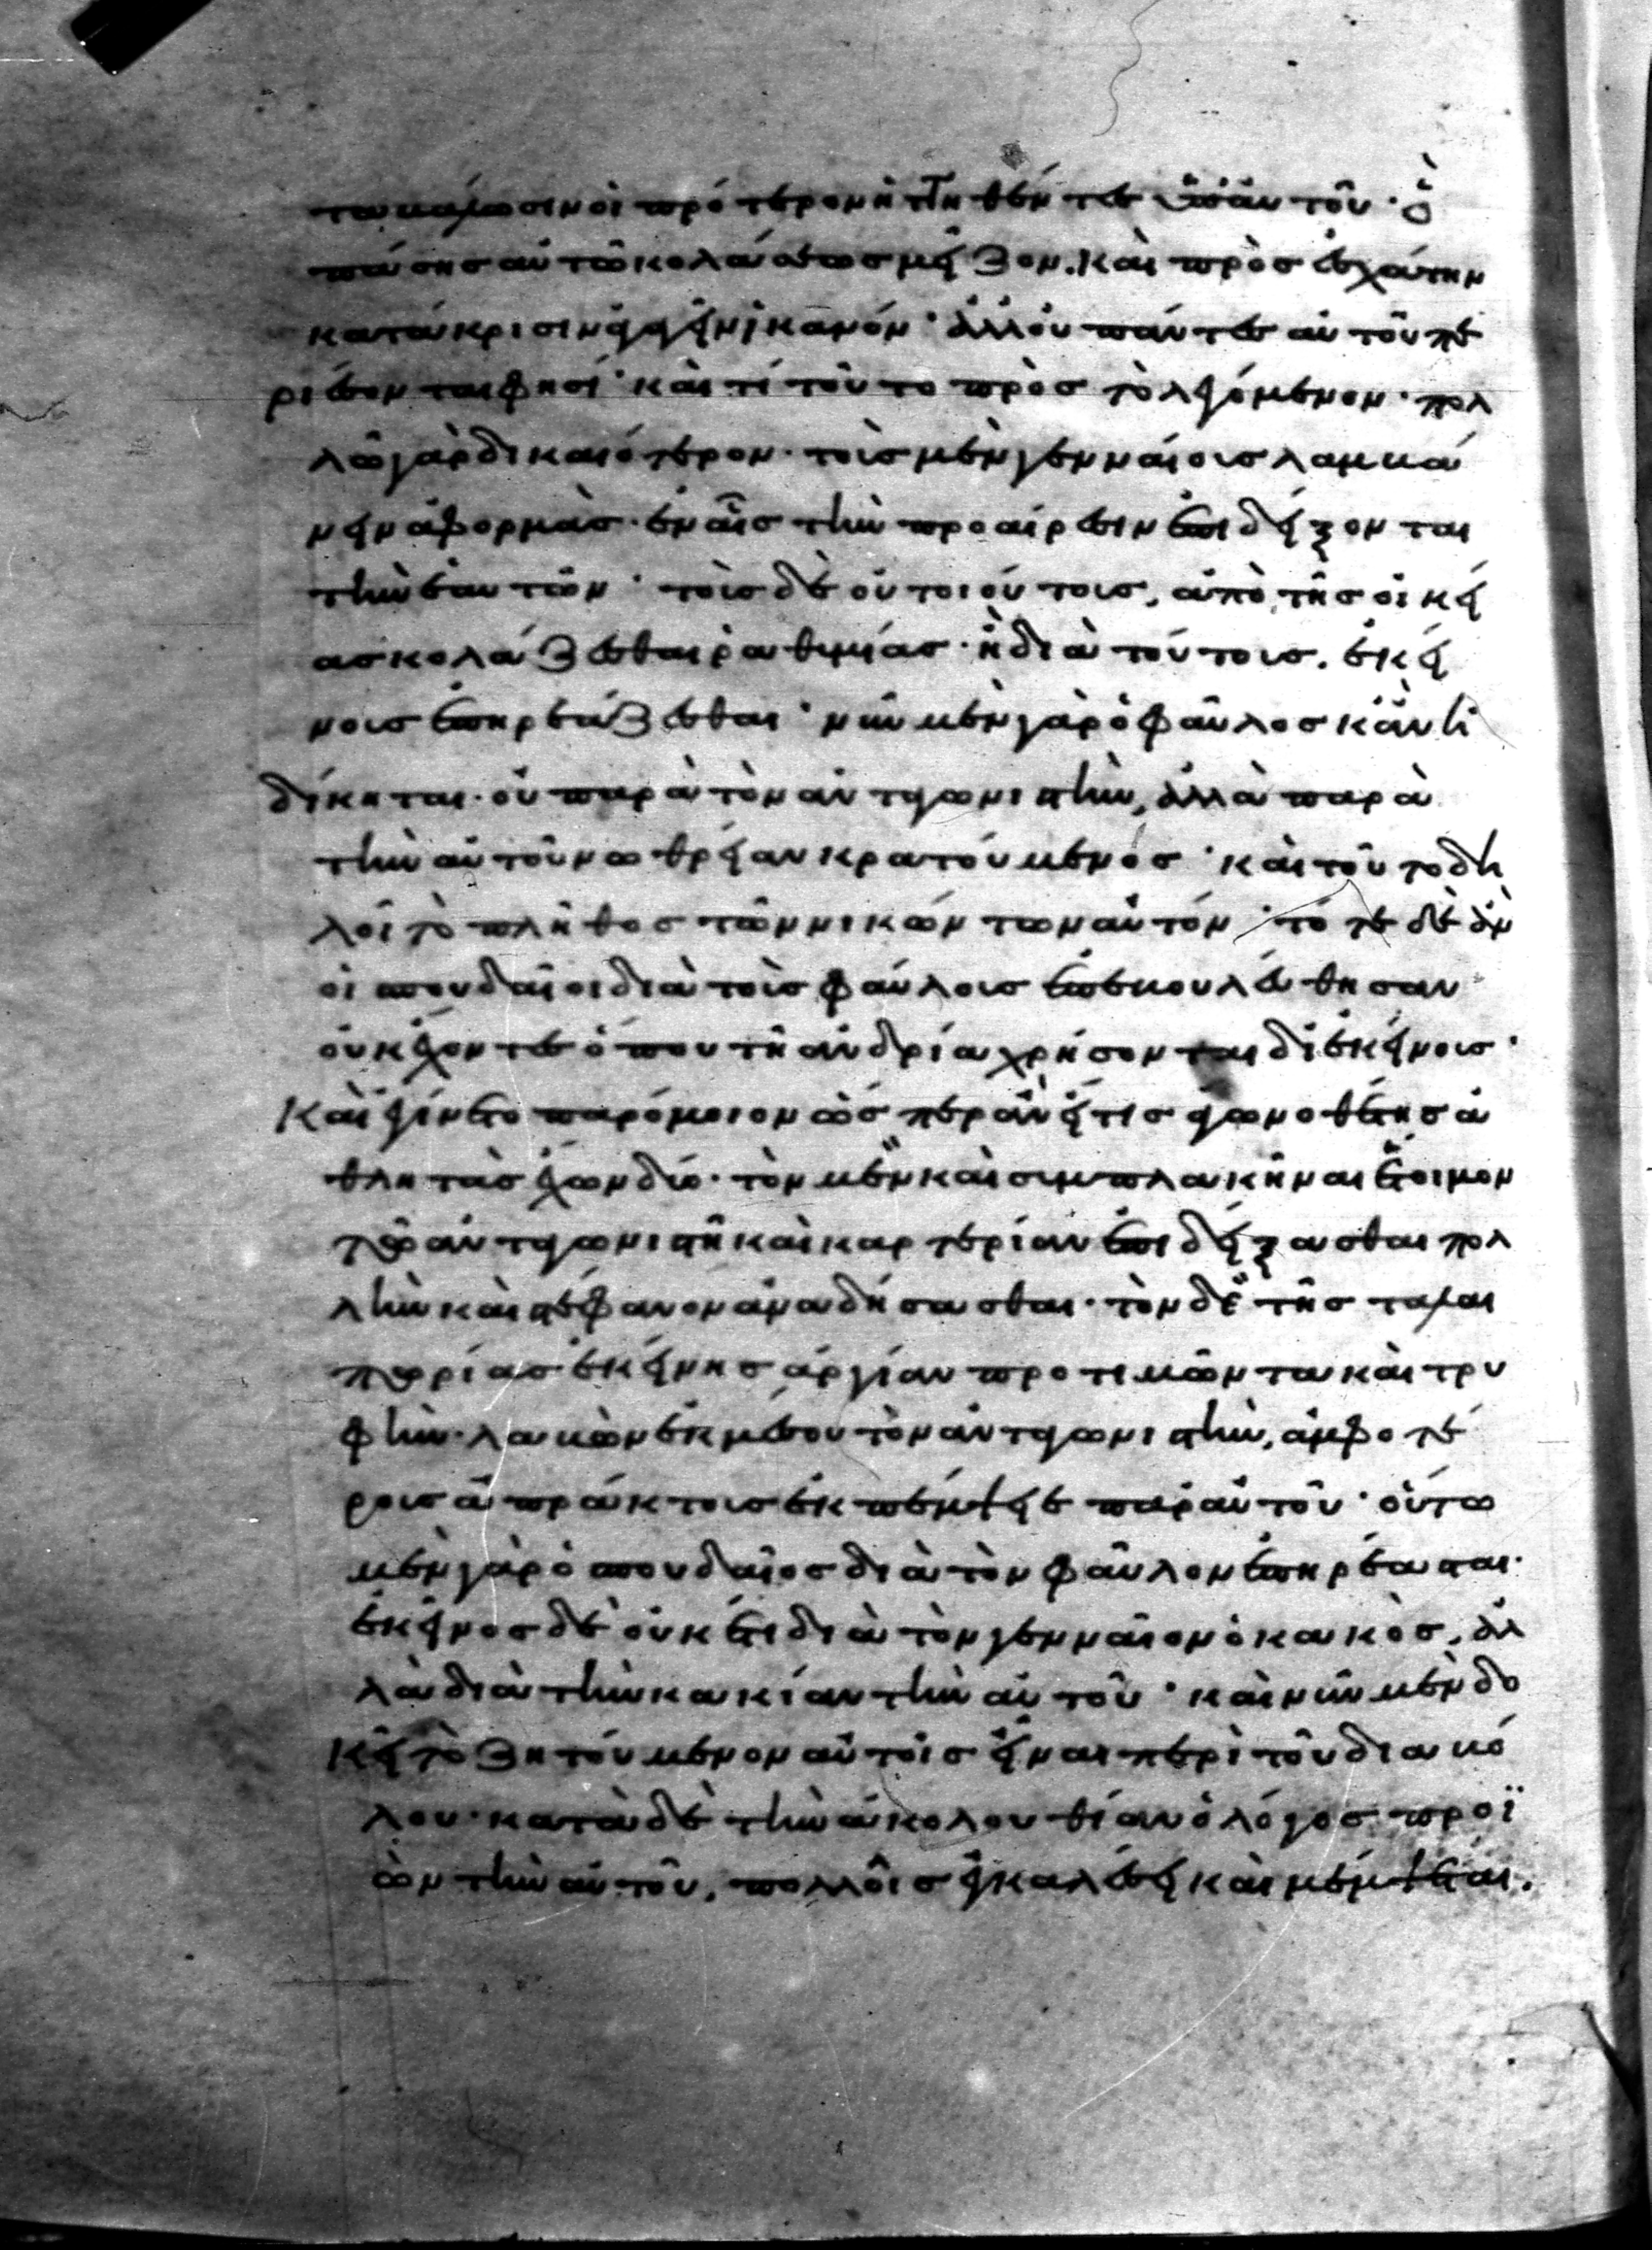 ταβάλωσιν οἱ πρότερον ἡττηθέντες ὑπ' αὐτοῦ· ὃ
πάσης αὐτῶ κολάσεως μεῖζον. καὶ πρὸς ἐσχάτην
κατάκρισιν ἀρκεῖν ἱκανόν· ἀλλ' οὐ πάντες αὐτοῦ πε
ριέσονται φησί· καὶ τί τοῦτο πρὸς τὸ λεγόμενον· πολ
λῶ γὰρ δικαιότερον· τοῖς μὲν γενναίοις λαμβά
νειν ἀφορμὰς· ἐν αἷς τὴν προαίρεσιν ἐπιδείξονται
τὴν ἑαυτῶν· τοῖς δὲ οὐ τοιούτοις, ἀπὸ τῆς οἰκεί
ας κολάζεσθαι ῥαθυμίας· ἢ διὰ τούτοις. ἐκεί
νοις ἐπηρεάζεσθαι· νῦν μὲν γὰρ ὁ φαῦλος κἂν ἠ
δίκηται· οὐ παρὰ τὸν ἀνταγωνιστὴν, ἀλλὰ παρὰ
τὴν αὐτοῦ νωθρείαν κρατούμενος· καὶ τοῦτο δη
λοῖ τὸ πλῆθος τῶν νικώντων αὐτόν· τότε δὲ ἂν
οἱ σπουδαῖοι διὰ τοῖς φαύλοις ἐπεβουλεύθησαν
οὐκ ἔχοντες ὅπου τῆ ἀνδρία χρήσονται δι' ἐκείνοις·
Καὶ ἐγίνετο παρόμοιον ὥσπερ ἂν εἴ τις ἀγωνοθέτης ἀ
θλητὰς ἔχων δύο· τὸν μὲν καὶ συμπλακῆναι ἕτοιμον
τῶ ἀνταγωνιστῆ καὶ καρτερίαν ἐπιδείξασθαι πολ
λὴν καὶ στέφανον ἀναδήσασθαι· τὸν δὲ τῆς ταλαι
πωρίας ἐκείνης ἀργίαν προτιμῶντα καὶ τρυ
φὴν· λαβὼν ἐκ μέσου τὸν ἀνταγωνιστὴν, ἀμφοτέ
ροις ἀπράκτοις ἐκπέμψειε παρ' αὐτοῦ· οὕτω
μὲν γὰρ ὁ σπουδαῖος διὰ τὸν φαῦλον ἐπηρέασται·
ἐκεῖνος δὲ οὐκέτι διὰ τὸν γενναῖον ὁ κακὸς, ἀλ
λὰ διὰ τὴν κακίαν τὴν αὐτοῦ· καὶ νῦν μὲν δο
Κεῖ τὸ ζητούμενον αὐτοῖς εἶναι περὶ τοῦ διαβό
λου· κατὰ δὲ τὴν ἀκολουθίαν ὁ λόγος προϊ
ὼν τὴν αὐτοῦ, πολλοῖς ἐγκαλέσει καὶ μέμψεται.